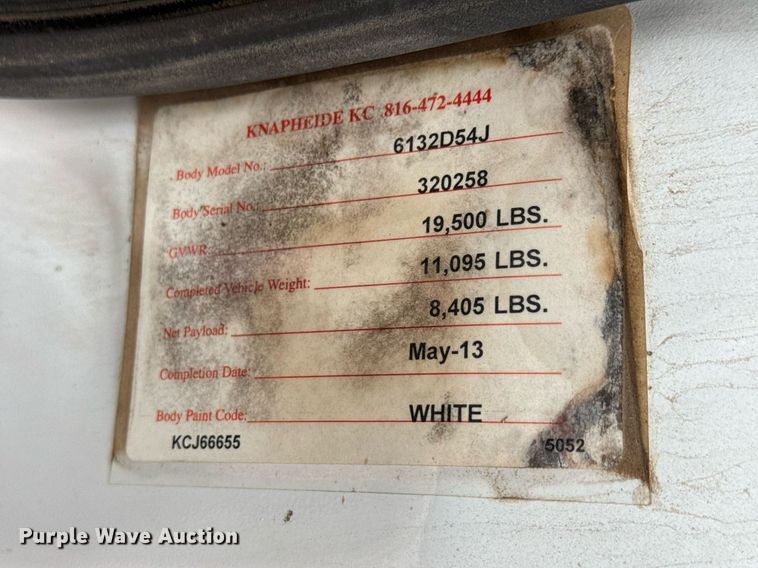 KNAPHEIDE KC 816-472-4444
Body Model No.: 6132D54J
Body Serial No.: 320258
GVWR 19,500 LBS.
Completed Vehicle Weight: 11,095 LBS.
Net Payload: 8,405 LBS.
Completion Date: May-13
Body Paint Code: WHITE
KCJ66655 5052
Purple Wave Auction